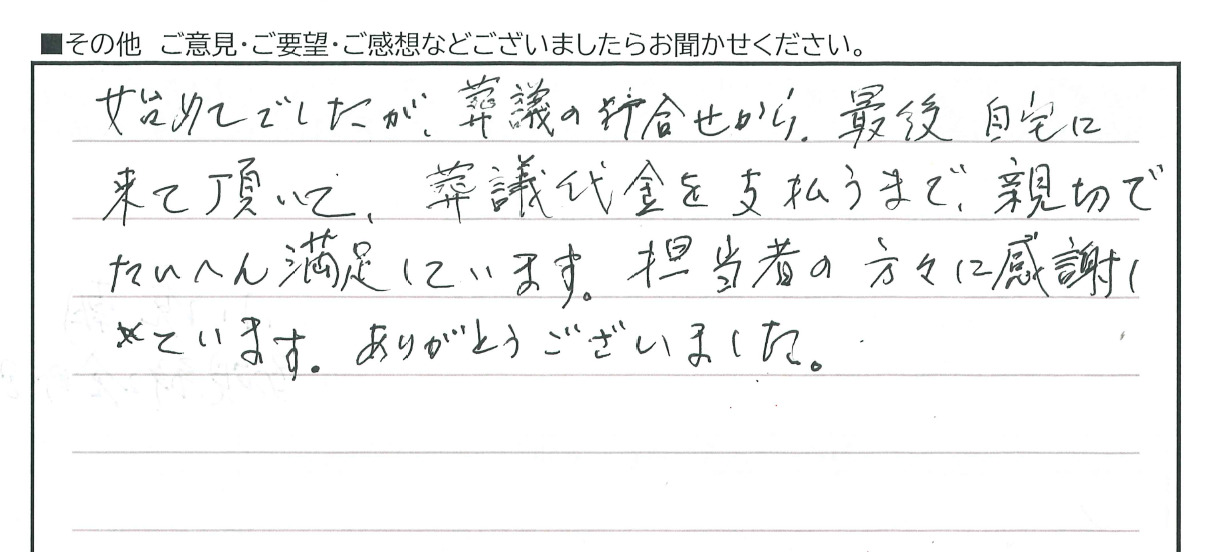 ■その他 ご意見・ご要望・ご感想などございましたらお聞かせください。
始めてでしたが、葬議の打合せから、最後 自宅に
来て頂いて、葬議代金を支払うまで、親切で
たいへん満足しています。担当者の方々に感謝し
ています。ありがとうございました。